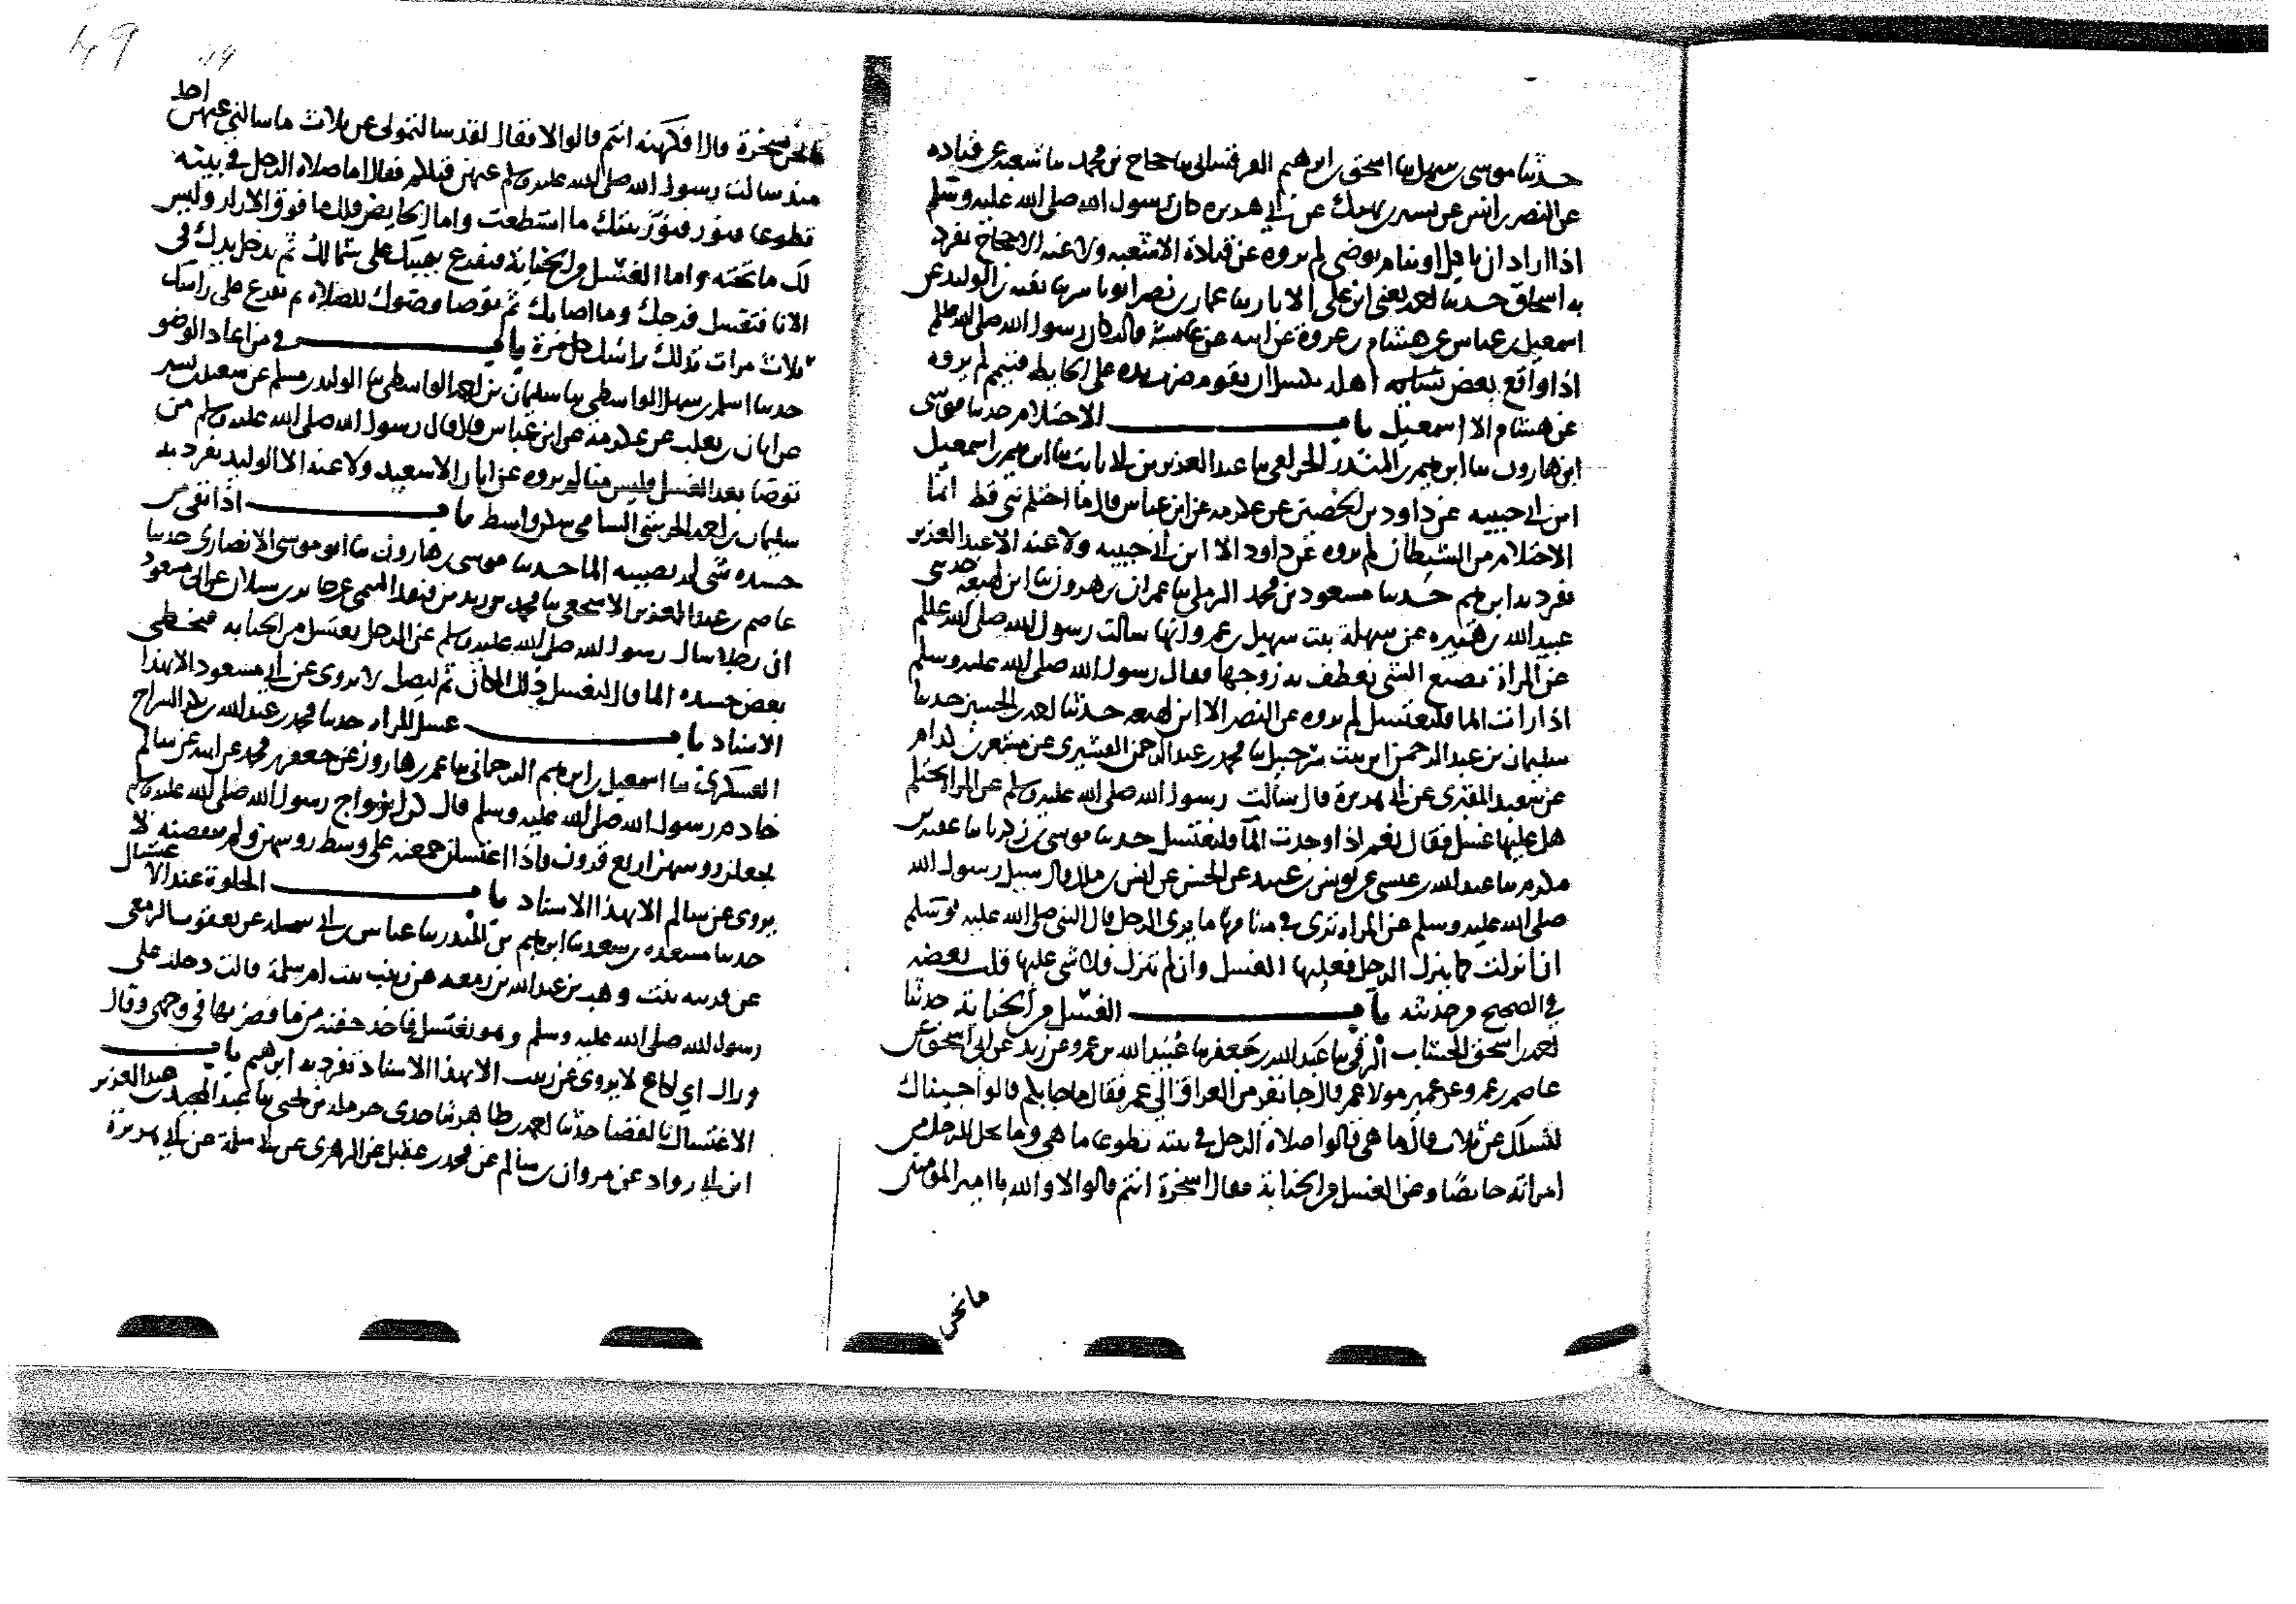 حدثنا موسى بن سهل ثنا اسحق بن ابرهيم القرقساني ثنا حجاج بن محمد ثنا شعبة عن قتاده
عن النضر بن انس عن بشير بن نهيك عن ابي هريره كان رسول الله صلى الله عليه وسلم
اذا اراد ان ياكل او ينام توضى لم يروه عن قتادة الا شعبه ولا عنه الا حجاج تفرد
به اسحاق حدثنا احمد يعني ابن علي الابار ثنا عمار بن نصر ابو ياسر ثنا بقيه بن الوليد عن
اسمعيل بن عياش عن هشام بن عروة عن ابيه عن عائشة قالت كان رسول الله صلى الله عليه وسلم
اذا واقع بعض اهله فكسل ان يقوم ضرب يده على الحايط فتيمم لم يروه
عن هشام الا اسمعيل باب الاحتلام حدثنا موسى
ابن هارون ثنا ابرهيم بن المنذر الحزامي ثنا عبد العزيز بن ابي ثابت ثنا ابرهيم بن اسمعيل
ابن ابي حبيبه عن داود بن الحصين عن عكرمه عن ابن عباس قال ما احتلم نبي قط انما
الاحتلام من الشيطان لم يروه عن داود الا ابن ابي حبيبه ولا عنه الا عبد العزيز
تفرد به ابرهيم حدثنا مسعود بن محمد الرملي ثنا عمران بن هرون ثنا ابن لهيعه حدثني
عبيد الله بن هبيره عن سهلة بنت سهيل بن عمرو انها سالت رسول الله صلى الله عليه وسلم
عن المراة تصنع الشي تعطف به زوجها فقال رسول الله صلى الله عليه وسلم
اذا رات الما فلتغتسل لم يروه عن النضر الا ابن لهيعه حدثنا احمد بن الحسين حدثنا
سليمان بن عبد الرحمن ابن بنت شرحبيل ثنا محمد بن عبد الرحمن القشيرى عن مسعر بن كدام
عن سعيد المقبرى عن ابي هريرة قال سالت رسول الله صلى الله عليه وسلم عن المراة تحتلم
هل عليها غسل فقال نعم اذا وجدت المآ فلتغتسل حدثنا موسى بن زكريا ثنا عقبه بن
مكرم ثنا عبد الله بن عيسى عن يونس بن عبيد عن الحسن عن انس بن ملك قال سيل رسول الله
صلى الله عليه وسلم عن المراه ترى في منامها ما يرى الرجل قال النبي صلى الله عليه وسلم
ان انزلت كما ينزل الرجل فعليها الغسل وان لم تنزل فلا شي عليها قلت بعضه
في الصحيح من حديثه باب الغسل من الجنابة حدثنا
احمد بن اسحق الخشاب الرقي ثنا عبد الله بن جعفر ثنا عبيد الله بن عمرو عن زيد عن ابي اسحق عن
عاصم بن عمرو عن عمير مولا عمر قال جا نفر من العراق الى عمر فقال ما جا بكم قالوا جيناك
لنسلك عن ثلاث قال ما هي قالوا صلاة الرجل في بيته تطوعا ما هي وما يحل للرجل من
امراته حايضا وعن الغسل من الجنابة فقال اسحرة انتم قالوا لا والله يا امير المؤمنين
ما نحن
ما نحن بسحرة قال افكهنه انتم قالوا لا فقال لقد سالتموني عن ثلاث ما سالني عنهن احد
منذ سالت رسول الله صلى الله عليه وسلم عنهن قبلكم فقال اما صلاة الرجل في بيته
تطوعا فنور فنور بيتك ما استطعت واما الحايض فلك ما فوق الازار وليس
لك ما تحته واما الغسل من الجنابة فتفرغ بيمينك على شمالك ثم تدخل يدك في
الانا فتغسل فرجك وما اصابك ثم توضا وضوك للصلاة ثم تفرغ على راسك
ثلاث مرات تدلك راسك كل مرة باب في من اعاد الوضو
حدثنا اسلم بن سهل الواسطي ثنا سليمان بن احمد الواسطي ثنا الوليد بن مسلم عن سعيد بن بشير
عن ابان بن تغلب عن عكرمه عن ابن عباس قال قال رسول الله صلى الله عليه وسلم من
توضا بعد الغسل فليس منا لم يروه عن ابان الا سعيد ولا عنه الا الوليد تفرد به
سليمان بن احمد الجرشي الشامي سكن واسط باب اذا بقي من
جسده شي لم يصيبه الما حدثنا موسى بن هارون ثنا ابو موسى الانصاري حدثنا
عاصم بن عبد العزيز الاشجعي ثنا محمد بن زيد بن قنفذ التيمي عن جابر بن سيلان عن ابن مسعود
ان رجلا سال رسول الله صلى الله عليه وسلم عن الرجل يغتسل من الجنابه فيخطي
بعض جسده الما قال ليغسل ذلك المكان ثم ليصل لا يروى عن ابن مسعود الا بهذا
الاسناد باب غسل المراه حدثنا محمد بن عبد الله بن السراج
العسكري ثنا اسمعيل بن ابرهيم الترجماني ثنا عمر بن هارون عن جعفر بن محمد عن ابيه عن سالم
خادم رسول الله صلى الله عليه وسلم قال كن ازواج رسول الله صلى الله عليه وسلم
يجعلن روسهن اربع قرون فاذا اغتسلن جمعنه على وسط روسهن ولم ينقضنه لا
يروى عن سالم الا بهذا الاسناد باب الخلوة عند الاغتسال
حدثنا مسعده بن سعد ثنا ابرهيم بن المنذر ثنا عباس بن ابي شمله عن يعقوب الزمعي
عن قريبه بنت وهب بن عبد الله بن زمعه عن زينب بنت ام سلمة قالت دخلت على
رسول الله صلى الله عليه وسلم وهو يغتسل فاخذ حفنه من ما فضرب بها في وجهي وقال
وراك اي لكاع لا يروى عن زينب الا بهذا الاسناد تفرد به ابرهيم باب
الاغتسال بالفضا حدثنا احمد بن طاهر ثنا جدى حرمله بن يحيى ثنا عبد المجيد بن عبد العزيز
ابن ابي رواد عن مروان بن سالم عن محمد بن عقيل عن الزهرى عن ابي سلمة عن ابي هريرة